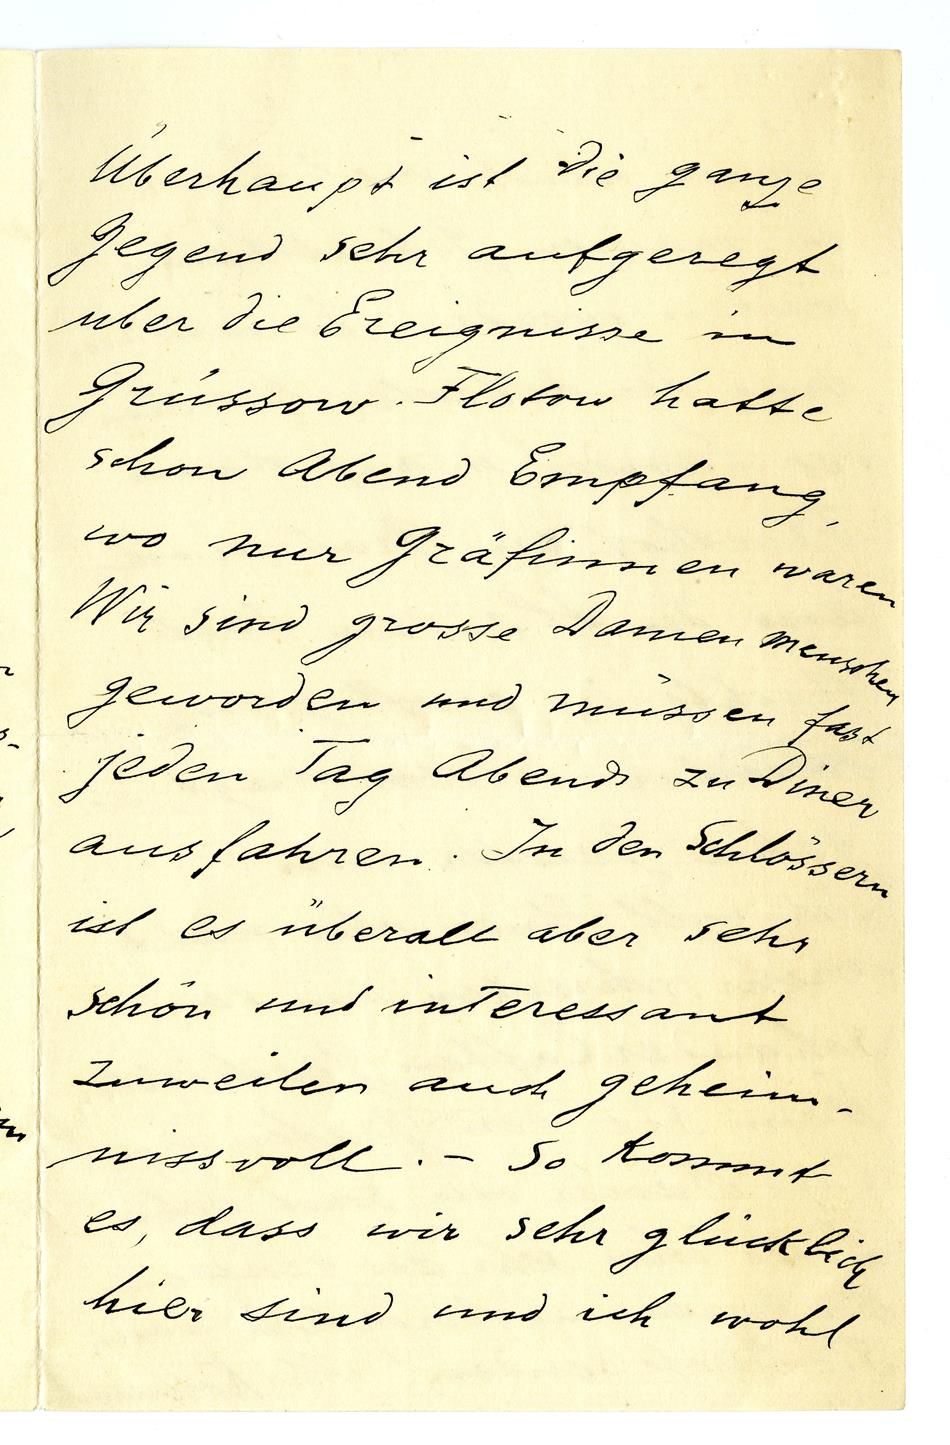 Überhaupt ist die ganze
Gegend sehr aufgeregt
über die Ereignisse in
Grüssow. Flotow hatte
schon Abend Empfang,
wo nur Gräfinnen waren
Wir sind grosse Damen menschen
geworden und müssen fast
jeden Tag Abends zu Diner
ausfahren. In den Schlössern
ist es überall aber sehr
schön und interessant
zuweilen auch geheim-
nissvoll. – So kommt
es, dass wir sehr glücklich
hier sind und ich wohl